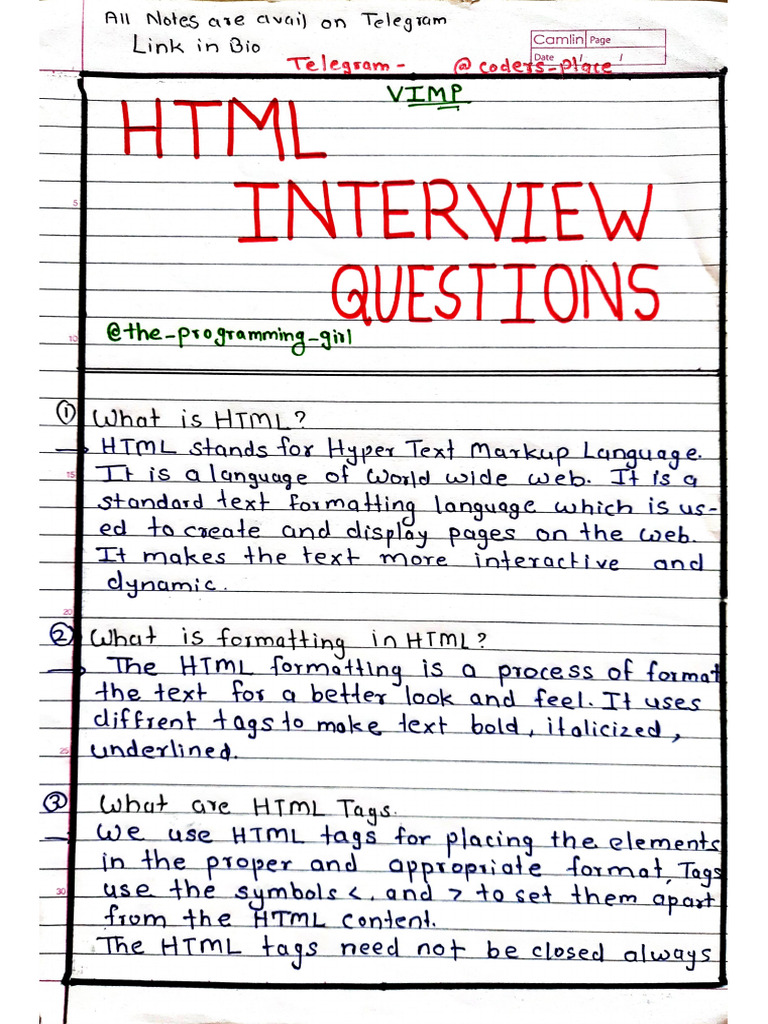 All Notes are avail on Telegram
Link in Bio
Camlin Page
Date / /
Telegram - @coders-place
VIMP
HTML
INTERVIEW
QUESTIONS
5
@the-programming-girl
10
① What is HTML?
→ HTML stands for Hyper Text Markup Language.
15
It is a language of World wide web. It is a
standard text formatting language which is us-
ed to create and display pages on the web.
It makes the text more interactive and
dynamic.
20
② What is formatting in HTML?
→ The HTML formatting is a process of format
the text for a better look and feel. It uses
diffrent tags to make text bold, italicized,
25
underlined.
③ What are HTML Tags.
→ We use HTML tags for placing the elements
in the proper and appropriate format, Tags
30
use the symbols <, and > to set them apart
from the HTML content.
The HTML tags need not be closed always